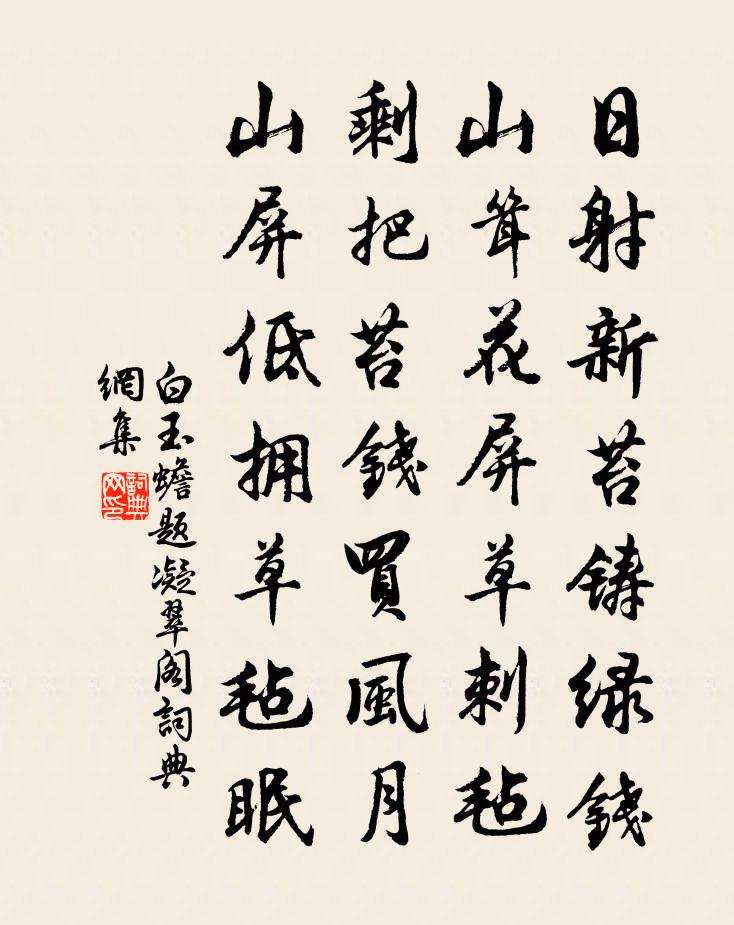 日射新苔铸绿錢
山耸花屏草刺毡
剩把苔錢買風月
山屏低拥草毡眠
白玉蟾题凝翠阁詞典
網集
詞典网印